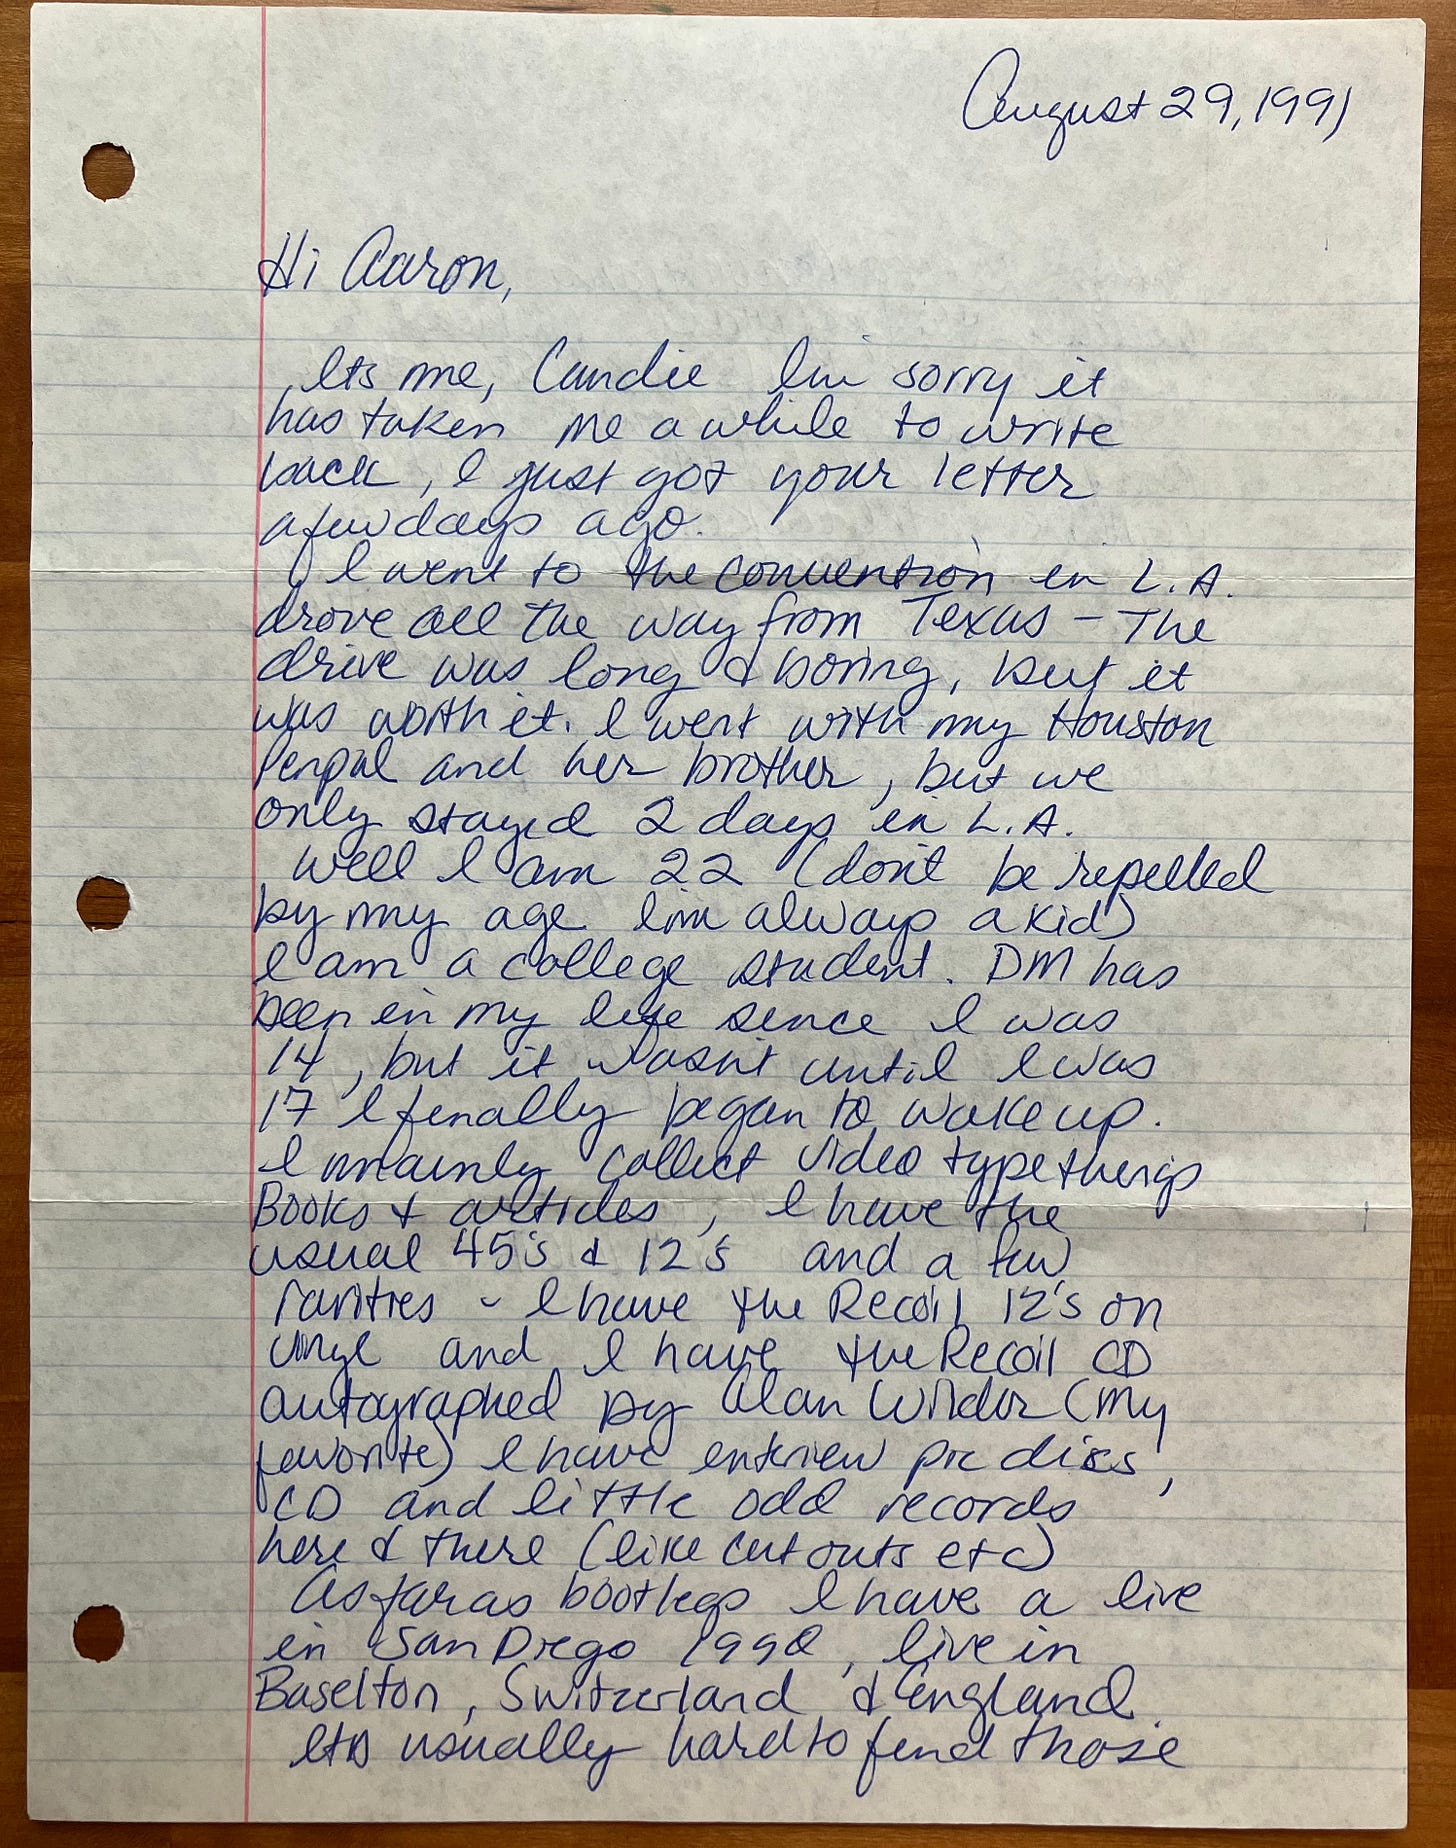 August 29, 1991
Hi Aaron,
Its me, Candie Im sorry it
has taken me a while to write
back, I just got your letter
a few days ago.
I went to the convention in L.A.
drove all the way from Texas - The
drive was long & boring, but it
was worth it. I went with my Houston
Penpal and her brother, but we
only stayed 2 days in L.A.
Well I am 22 (don't be repelled
by my age Im always a kid)
I am a college student. DM has
been in my life since I was
14, but it wasn't until I was
17 I finally began to wake up.
I mainly collect video type things
Books & articles, I have the
usual 45's & 12's and a few
rarities - I have the Recoil 12's on
vinyl and I have the Recoil CD
autographed by Alan Wilder (my
favorite) I have interview pic discs,
CD and little odd records
here & there (like cut outs etc)
As far as bootlegs I have a live
in San Diego 1990, live in
Baselton, Switzerland & England.
Its usually hard to find those